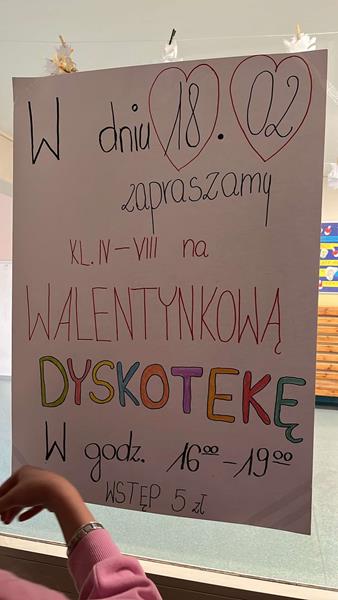 W dniu 18.02
zapraszamy
KL. IV-VIII na
WALENTYNKOWĄ
DYSKOTEKĘ
W godz. 16⁰⁰-19⁰⁰
WSTĘP 5 zł